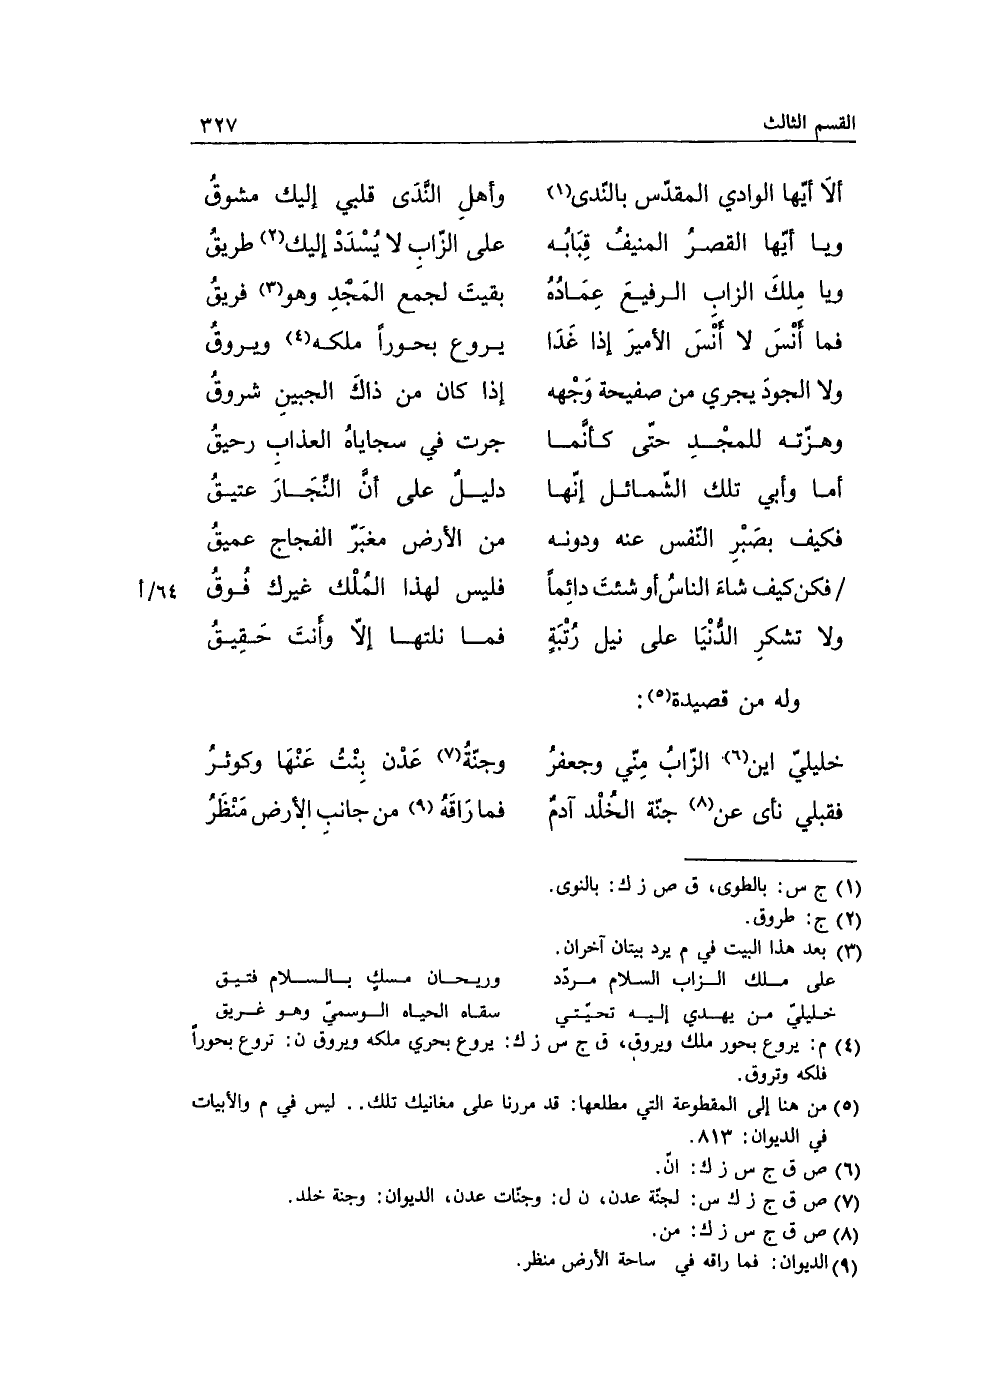 القسم الثالث ٣٢٧
ألَا أيّها الوادي المقدّس بالنّدى(١) وأهلِ النَّدَى قلبي إليك مشوقُ
ويا أيّها القصرُ المنيفُ قِبَابُه على الزّابِ لا يُسْدَدْ إليك(٢) طريقُ
ويا مِلكَ الزابِ الرفيعَ عِمَادُهُ بقيتَ لجمع المَجْدِ وهو(٣) فريقُ
فما أَنْسَ لا أَنْسَ الأميرَ إذا غَدَا يروع بحوراً ملكه(٤) ويروقُ
ولا الجودَ يجري من صفيحة وَجْهه إذا كان من ذاكَ الجبينِ شروقُ
وهزّته للمجْدِ حتّى كأنَّما جرت في سجاياهُ العذابِ رحيقُ
أما وأبي تلك الشّمائل إنّها دليلٌ على أنَّ النِّجَارَ عتيقُ
فكيف بصَبْرِ النّفس عنه ودونه من الأرض مغبَرّ الفجاج عميقُ
/ فكن كيف شاءَ الناسُ أو شئتَ دائِماً فليس لهذا المُلْك غيرك فُوقُ ٦٤/أ
ولا تشكرِ الدُّنْيَا على نيل رُتْبَةٍ فما نلتها إلاّ وأَنتَ حَقِيقُ
وله من قصيدة(٥):
خليليّ اين(٦) الزّابُ مِنّي وجعفرُ وجنّةُ(٧) عَدْن بِنْتُ عَنْهَا وكوثرُ
فقبلي نأى عن(٨) جنّة الخُلْد آدمٌ فما رَاقَهُ (٩) من جانبِ الأرض مَنْظَرُ
(١) ج س: بالطوى، ق ص ز ك: بالنوى.
(٢) ج: طروق.
(٣) بعد هذا البيت في م يرد بيتان آخران.
على ملك الزاب السلام مردّد وريحان مسكٍ بالسلام فتيق
خليليّ من يهدي إليه تحيّتي سقاه الحياه الوسميّ وهو غريق
(٤) م: يروع بحور ملك ويروق، ق ج س ز ك: يروع بحري ملكه ويروق ن: تروع بحوراً
فلكه وتروق.
(٥) من هنا إلى المقطوعة التي مطلعها: قد مررنا على مغانيك تلك.. ليس في م والأبيات
في الديوان: ٨١٣.
(٦) ص ق ج س ز ك: انّ.
(٧) ص ق ج ز ك س: لجنّة عدن، ن ل: وجنّات عدن، الديوان: وجنة خلد.
(٨) ص ق ج س ز ك: من.
(٩) الديوان: فما راقه في ساحة الأرض منظر.